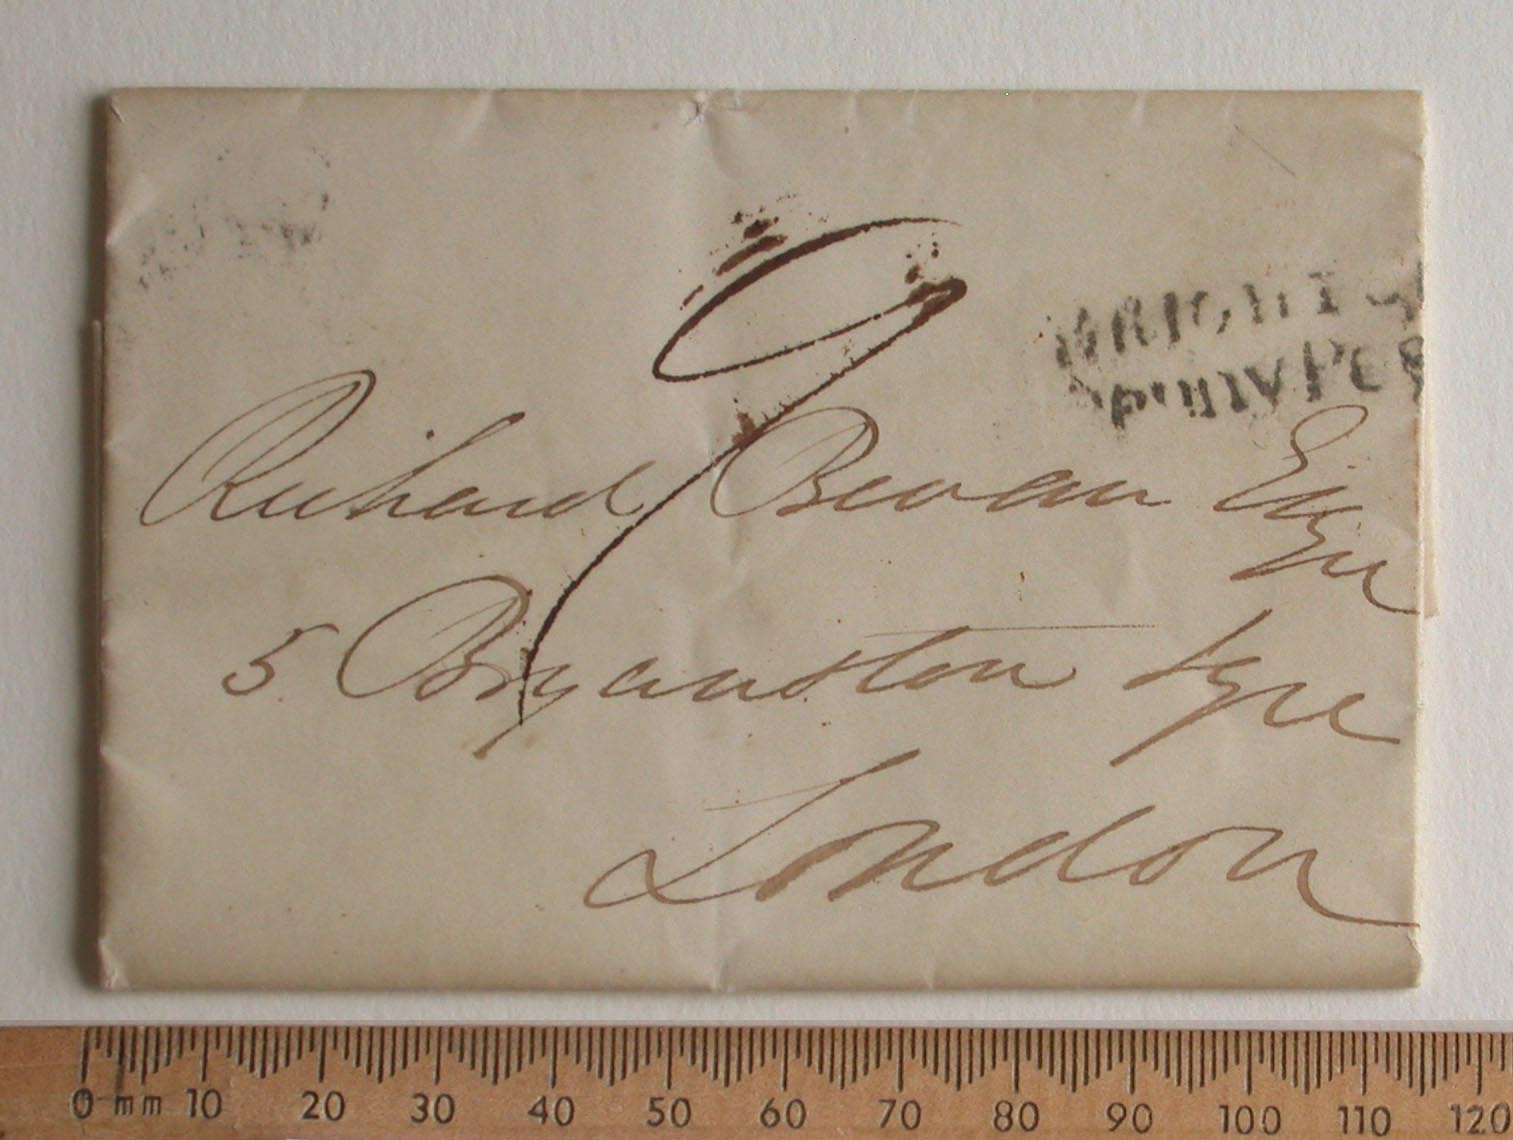 9
BRIGHTO
PENNY POS
Richard Bevan Esqre
5 Bryanston Sqre
London
0 mm 10 20 30 40 50 60 70 80 90 100 110 120